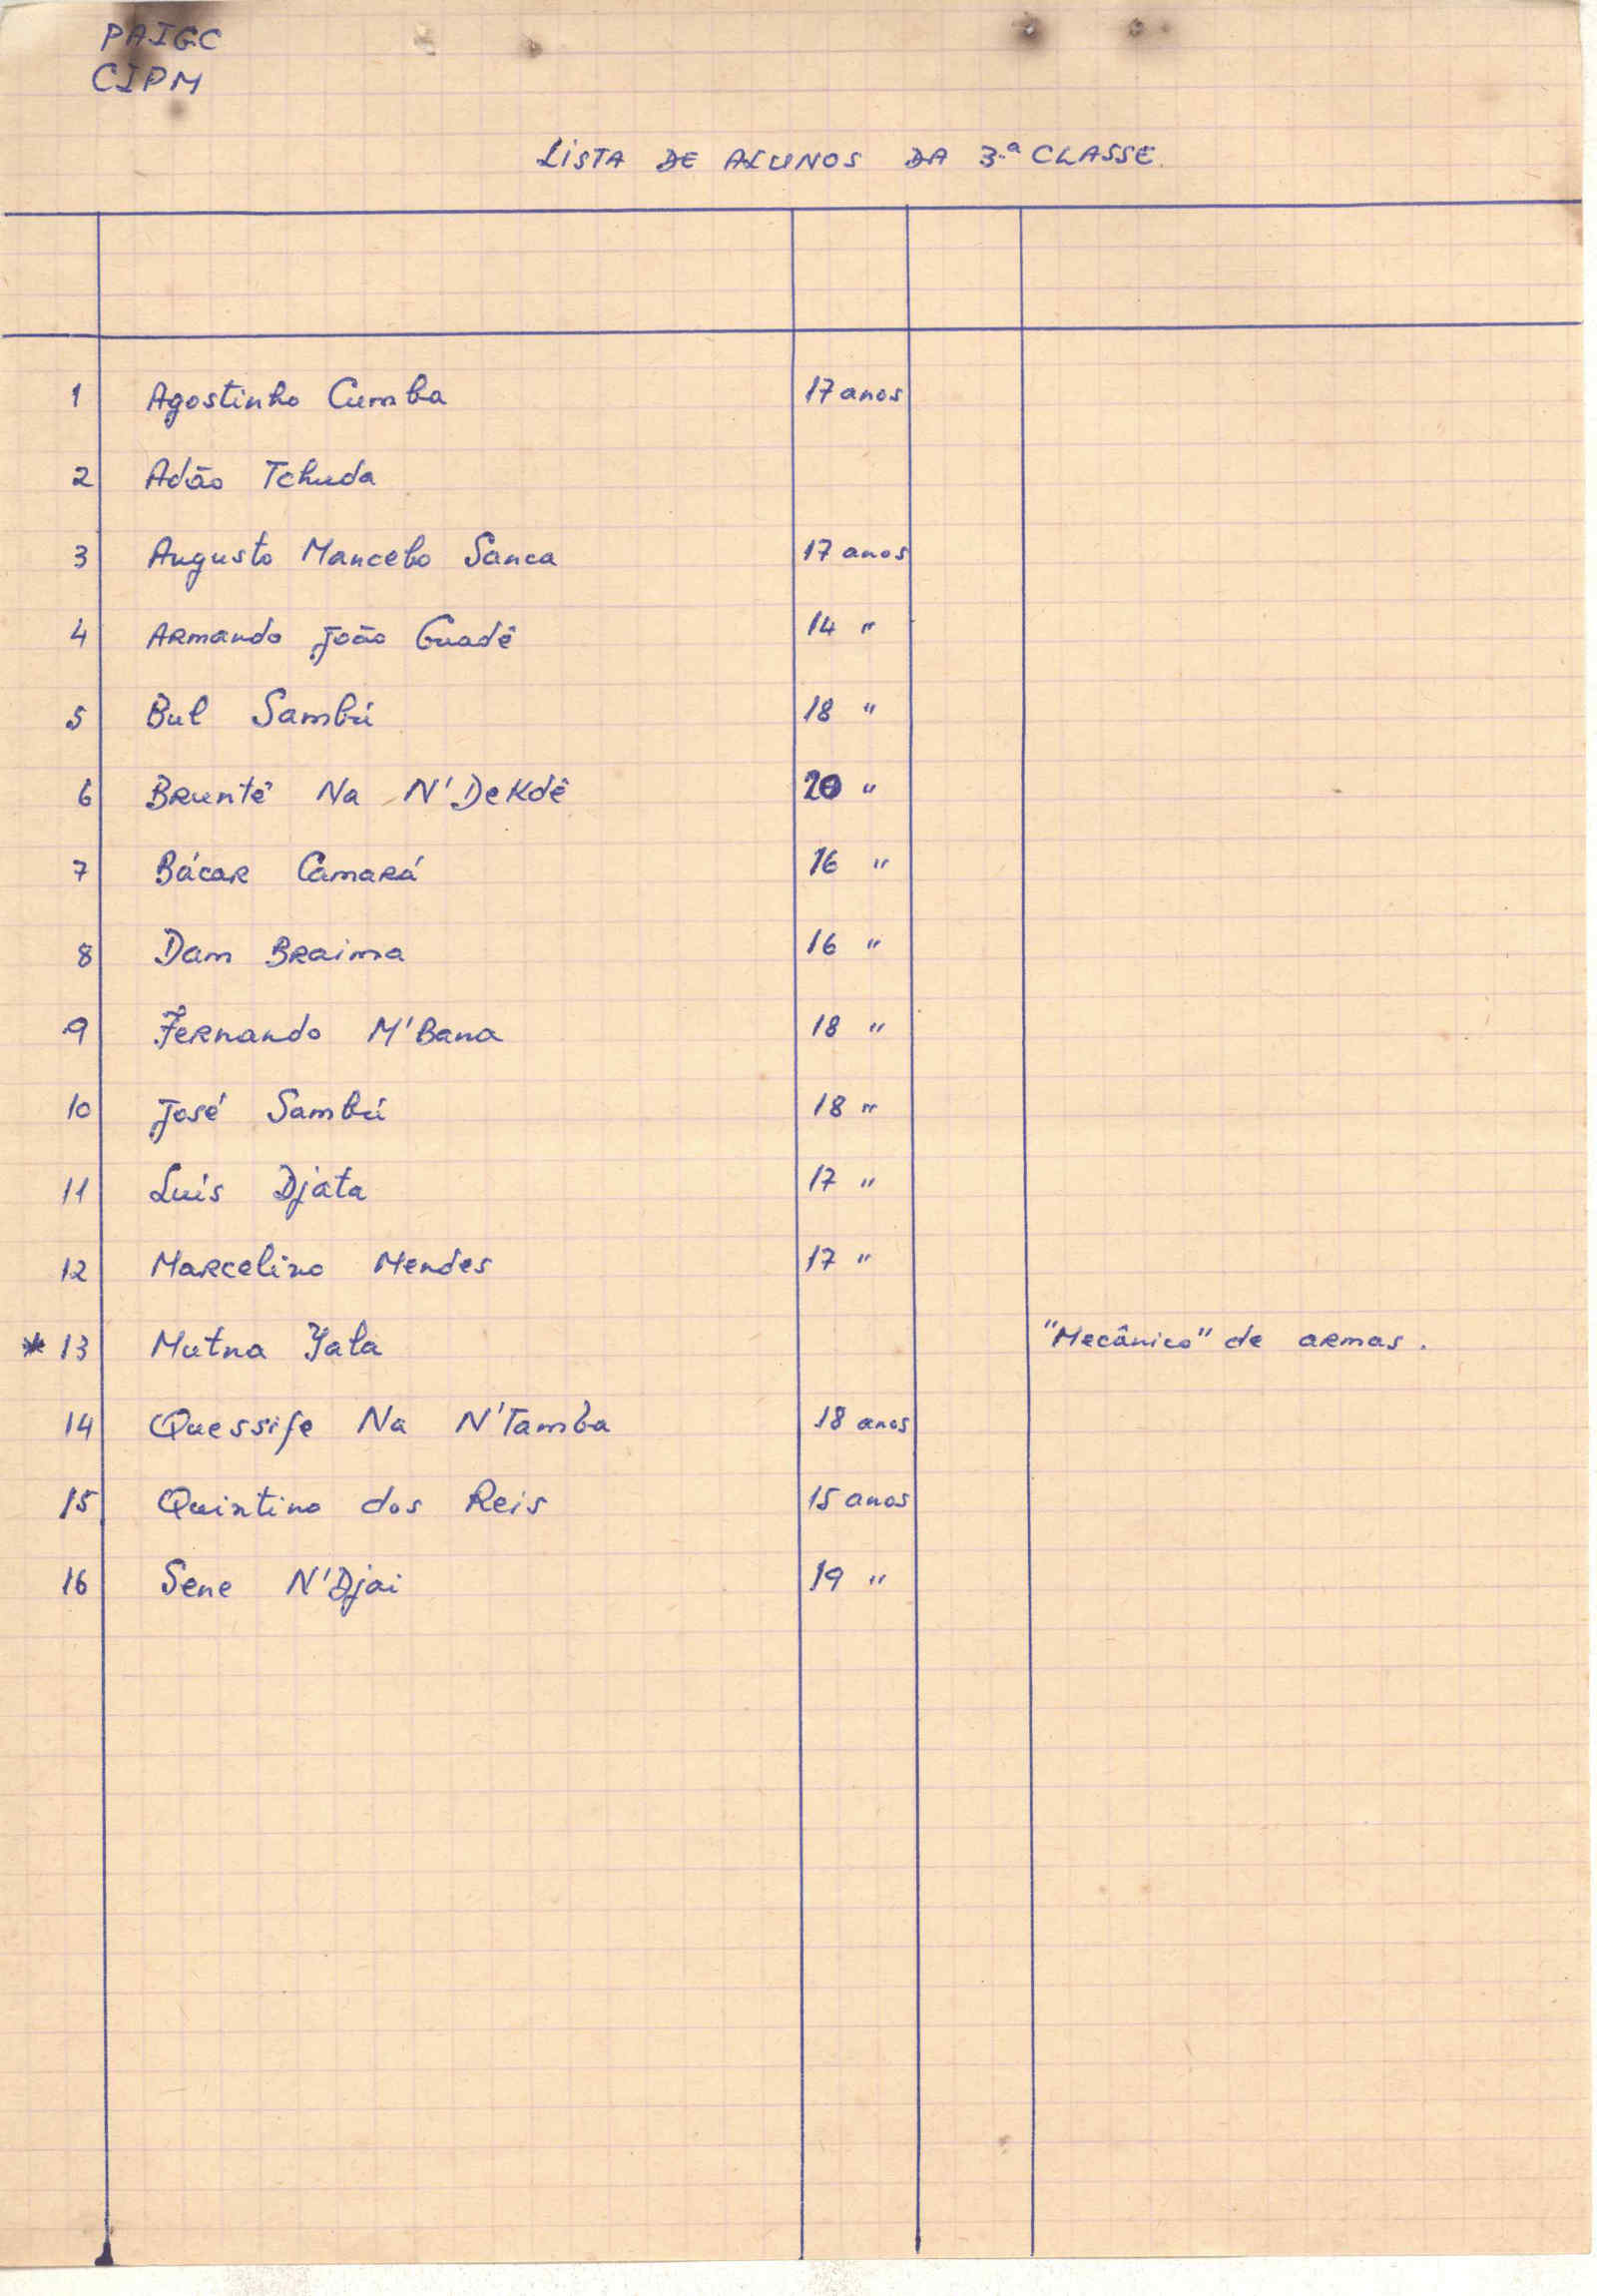 PAIGC
CIPM
LISTA DE ALUNOS DA 3.ª CLASSE.
1 Agostinho Cumba 17 anos
2 Adão Tchuda
3 Augusto Mancebo Sanca 17 anos
4 Armando João Guadê 14 "
5 Bul Sambú 18 "
6 Bruntê Na N'DeKdê 20 "
7 Bácar Camará 16 "
8 Dam Braima 16 "
9 Fernando M'Bana 18 "
10 José Sambú 18 "
11 Luís Djata 17 "
12 Marcelino Mendes 17 "
* 13 Mutna Yala "Mecânico" de armas.
14 Quessife Na N'Tamba 18 anos
15 Quintino dos Reis 15 anos
16 Sene N'Djai 19 "